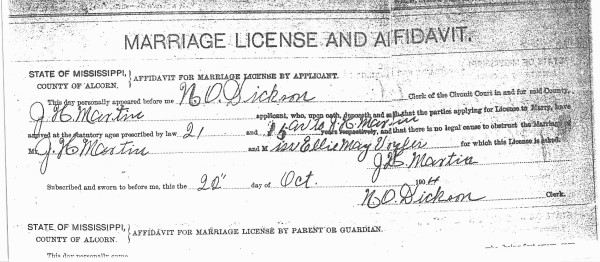 MARRIAGE LICENSE AND AFFIDAVIT.
STATE OF MISSISSIPPI,
COUNTY OF ALCORN.
AFFIDAVIT FOR MARRIAGE LICENSE BY APPLICANT.
This day personally appeared before me N.O. Dickson Clerk of the Circuit Court in and for said County,
J H Martin applicant, who, upon oath, deposeth and saith that the parties applying for License to Marry, have
arrived at the statutory age prescribed by law 21 and years respectively, and that there is no legal cause to obstruct the Marriage
Mr J. H Martin and Miss Ellie May for which this License is asked.
J H. Martin
Subscribed and sworn to before me, this the 20" day of Oct. 190
N.O. Dickson Clerk.
STATE OF MISSISSIPPI,
COUNTY OF ALCORN.
AFFIDAVIT FOR MARRIAGE LICENSE BY PARENT OR GUARDIAN.
This day personally came